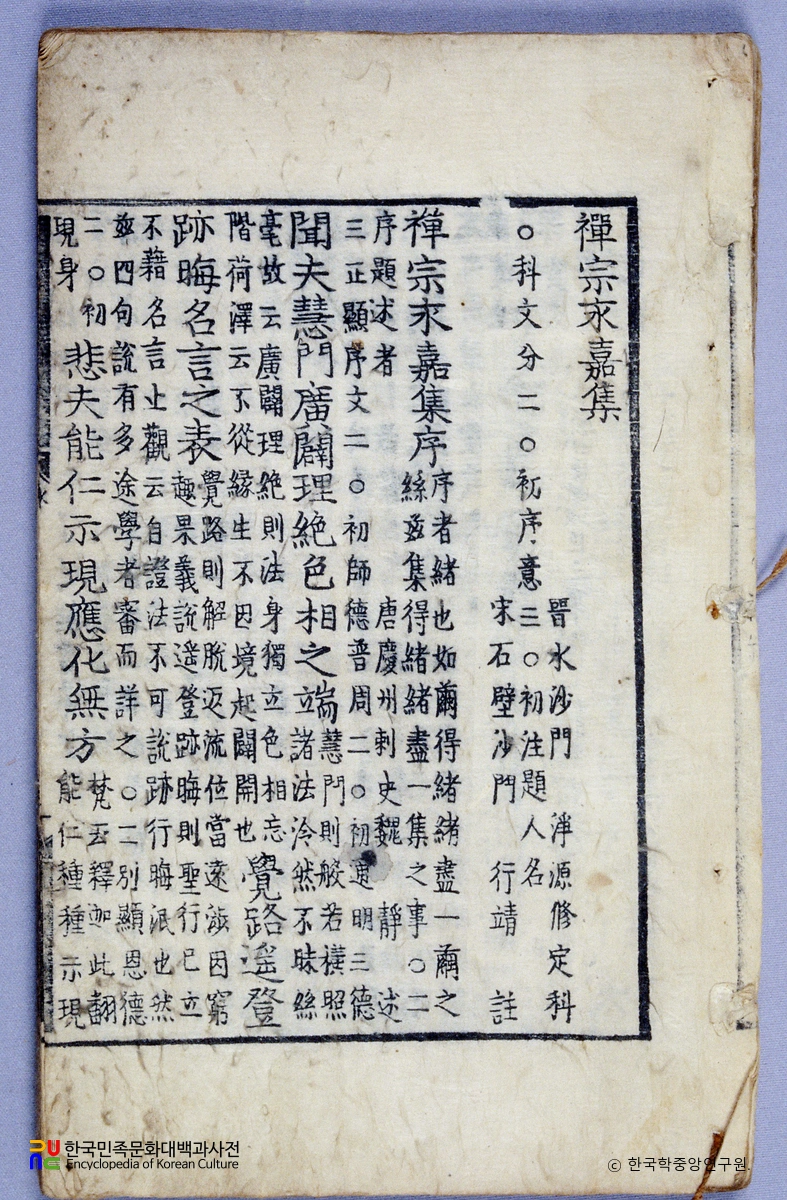 禪宗永嘉集
晋水沙門 淨源 修定科
○科文分二○初序意三○初注題人名
宋石壁沙門 行靖 註
禪宗永嘉集序
序者緖也如繭得緖緖盡一繭之
絲玆集得緖緖盡一集之事○二
序題述者 唐慶州刺史魏 靜 述
三正顯序文二○初師德普周二○初通明三德
聞夫慧門廣闢理絶色相之端
慧門則般若橫照
諸法泠然不昧絲
毫故云廣闢理絶則法身獨立色相忘
階荷澤云不從緣生不因境起闢開也
覺路遥登
跡晦名言之表
覺路則解脫返流位當遠涉因窮
趣果義說遥登跡晦則聖行已立
不藉名言止觀云自證法不可說跡行晦泯也然
玆四句說有多途學者審而詳之○二別顯恩德
二○初
現身
悲夫能仁示現應化無方
梵云釋迦此翻
能仁種種示現
한국민족문화대백과사전
Encyclopedia of Korean Culture
© 한국학중앙연구원